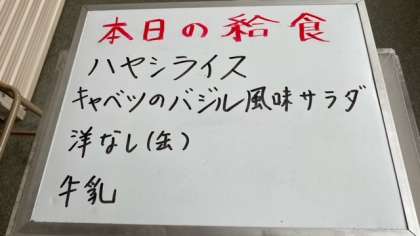 本日の給食
ハヤシライス
キャベツのバジル風味サラダ
洋なし(缶)
牛乳